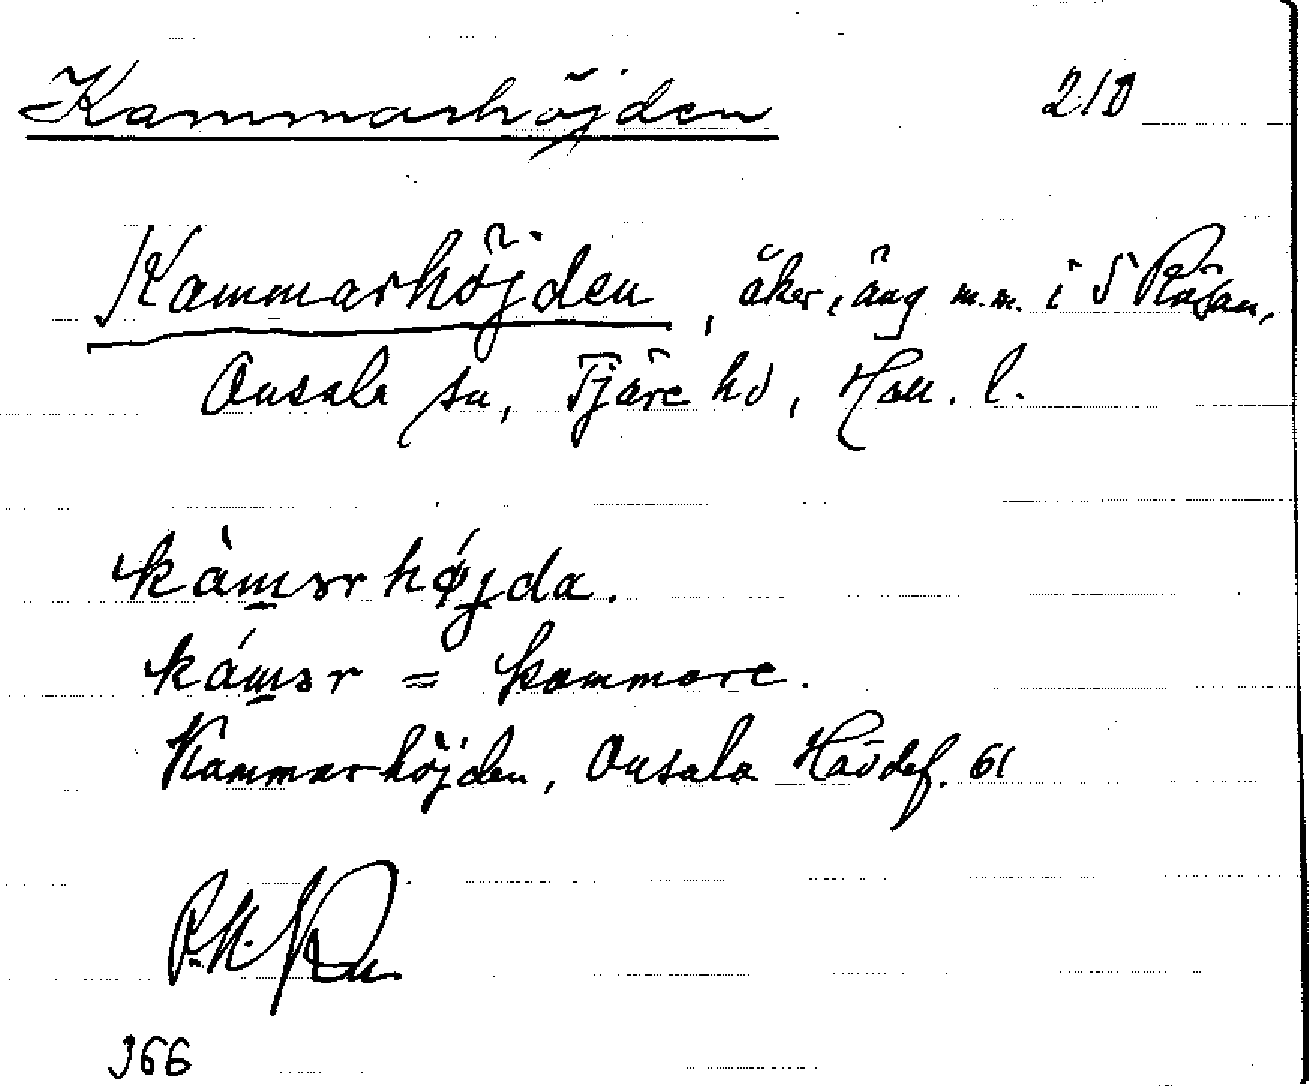 Kammarhöjden 210
Kammarhöjden, åker, äng m.m. i S
Onsala sn, Fjäre hd, Hall. l.
kàmər højda.
kámər = kammare.
Kammarhöjden, Onsala Hävdef. 61
366